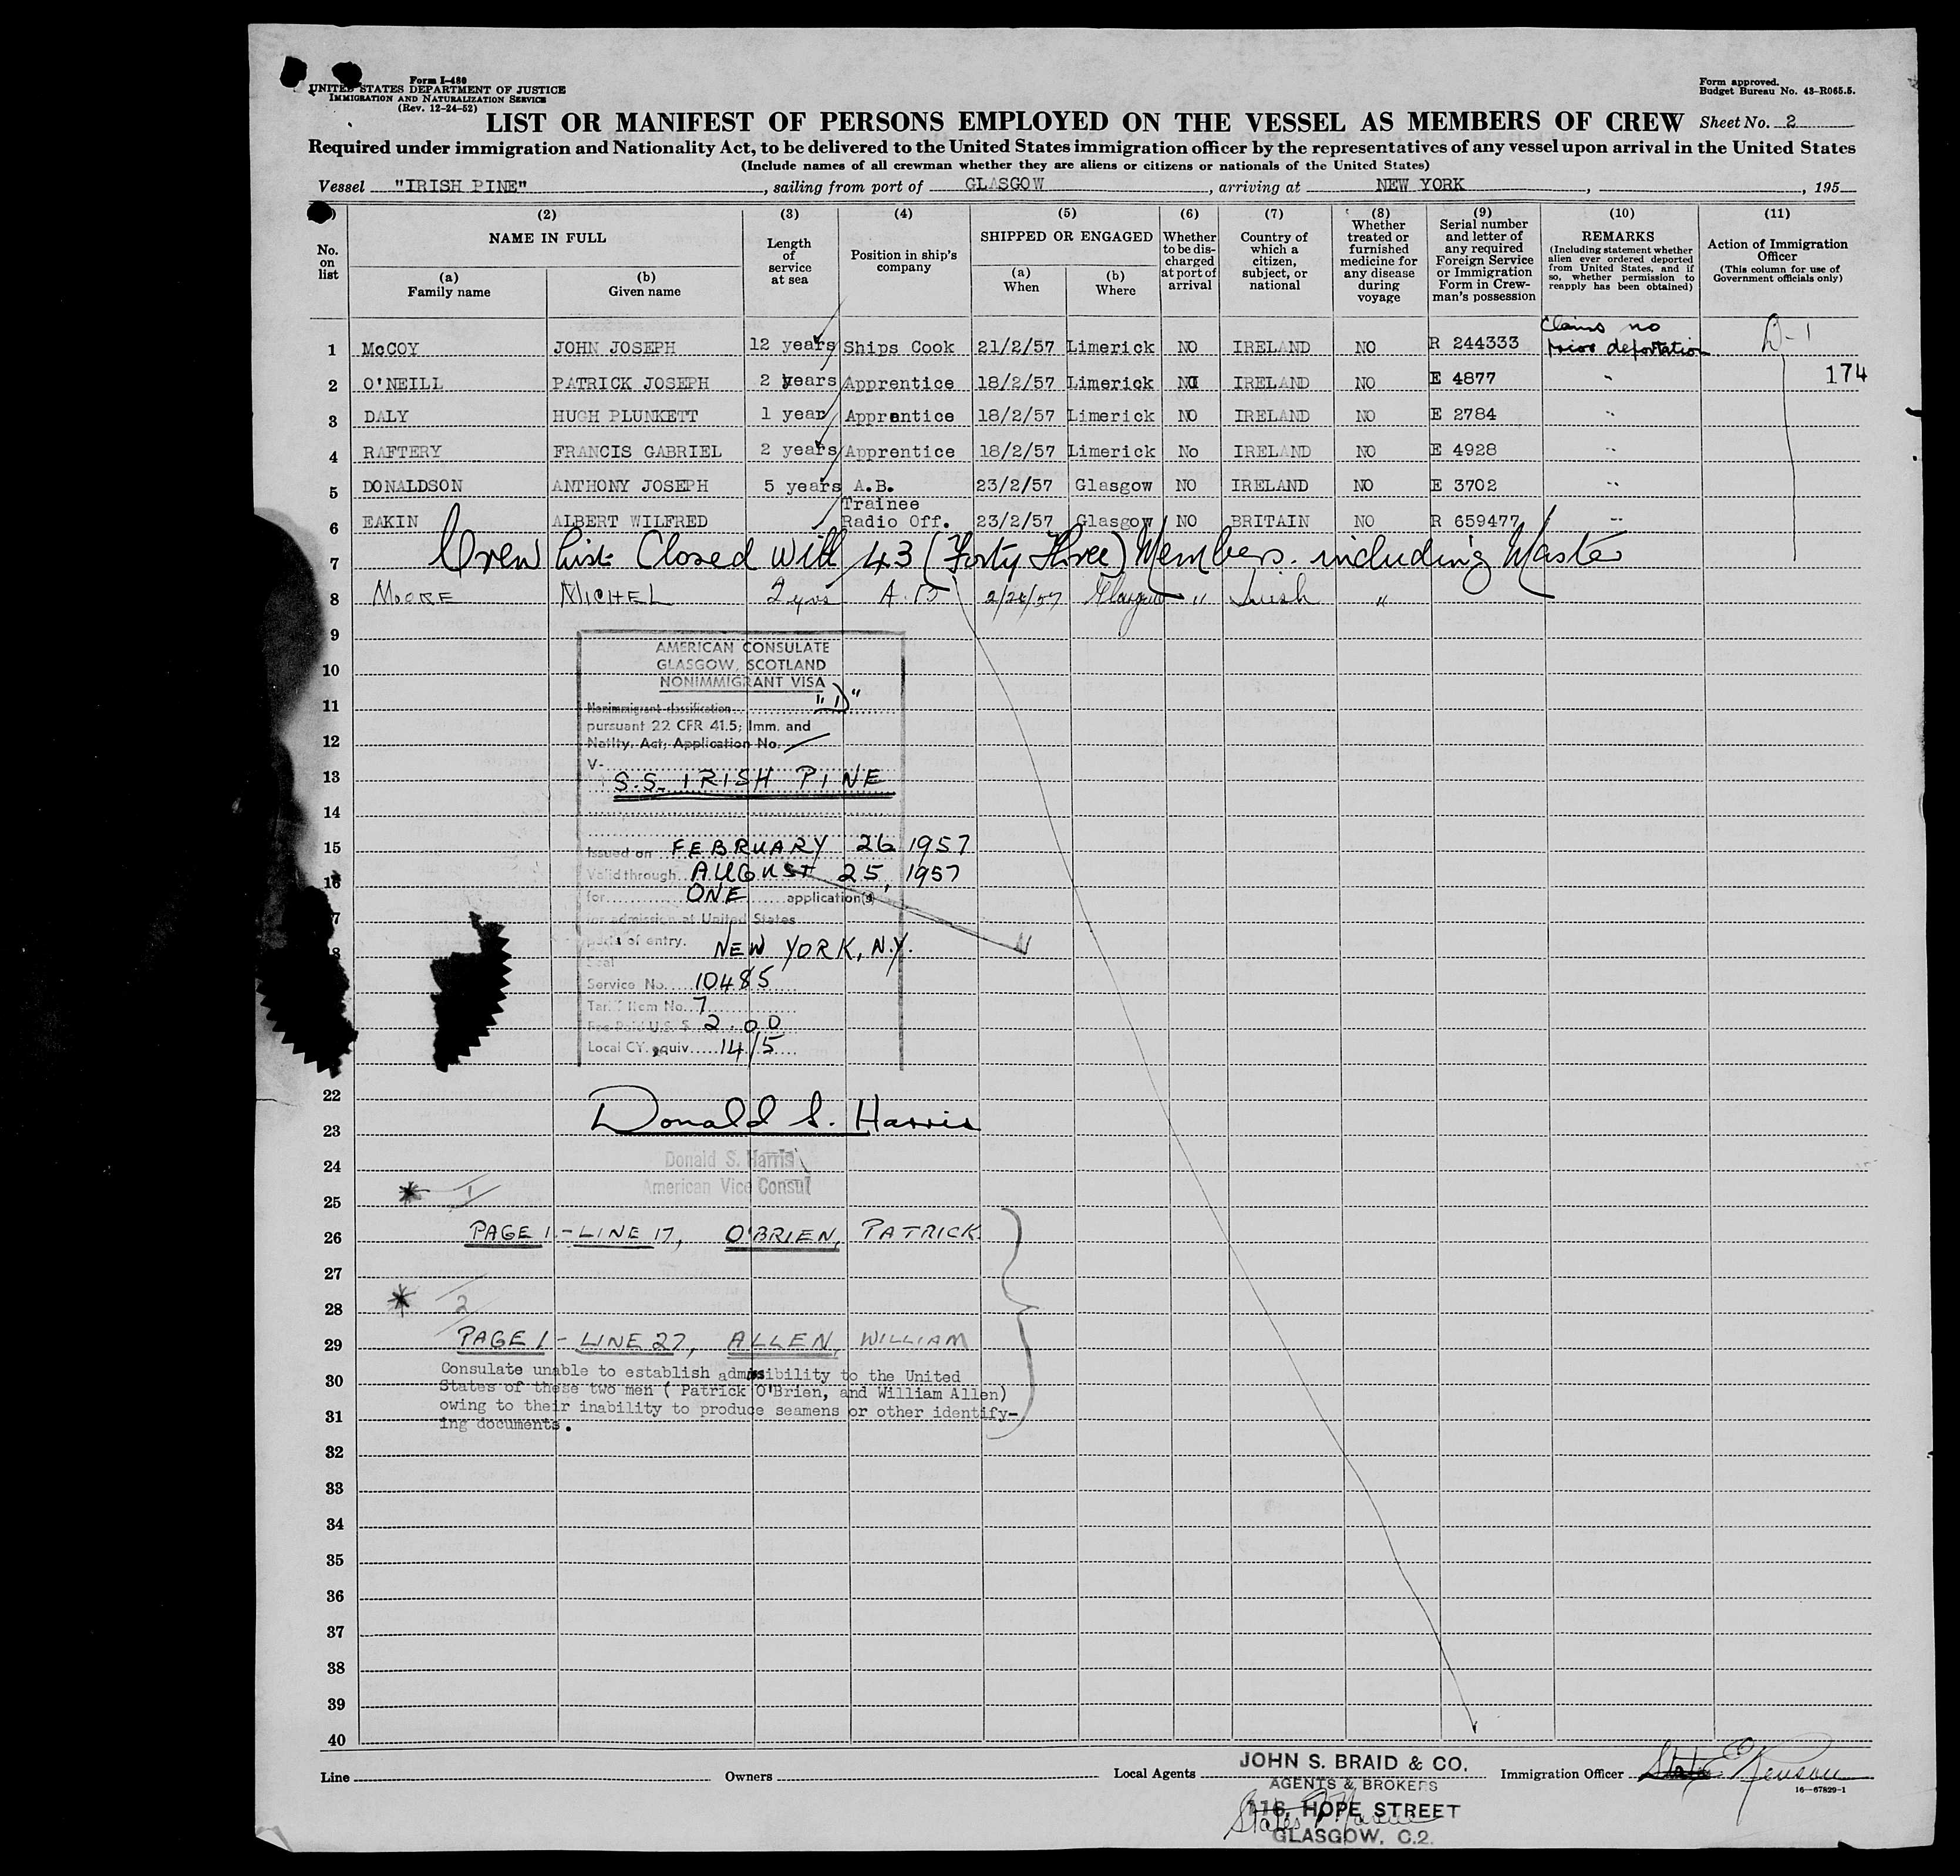 Form I-480
UNITED STATES DEPARTMENT OF JUSTICE
IMMIGRATION AND NATURALIZATION SERVICE
(Rev. 12-24-52)
Form approved.
Budget Bureau No. 43-R065.5.
LIST OR MANIFEST OF PERSONS EMPLOYED ON THE VESSEL AS MEMBERS OF CREW Sheet No. 2
Required under immigration and Nationality Act, to be delivered to the United States immigration officer by the representatives of any vessel upon arrival in the United States
(Include names of all crewman whether they are aliens or citizens or nationals of the United States)
Vessel "IRISH PINE", sailing from port of GLASGOW, arriving at NEW YORK, , 195
(2) (3) (4) (5) (6) (7) (8) (9) (10) (11)
No. on list
NAME IN FULL
(a) Family name
(b) Given name
Length of service at sea
Position in ship's company
SHIPPED OR ENGAGED
(a) When
(b) Where
Whether to be discharged at port of arrival
Country of which a citizen, subject, or national
Whether treated or furnished medicine for any disease during voyage
Serial number and letter of any required Foreign Service or Immigration Form in Crewman's possession
REMARKS
(Including statement whether alien ever ordered deported from United States, and if so, whether permission to reapply has been obtained)
Action of Immigration Officer
(This column for use of Government officials only)
1 McCOY JOHN JOSEPH 12 years Ships Cook 21/2/57 Limerick NO IRELAND NO R 244333 Claims no prior deportation D-1
2 O'NEILL PATRICK JOSEPH 2 years Apprentice 18/2/57 Limerick NO IRELAND NO E 4877 " 174
3 DALY HUGH PLUNKETT 1 year Apprentice 18/2/57 Limerick NO IRELAND NO E 2784 "
4 RAFTERY FRANCIS GABRIEL 2 years Apprentice 18/2/57 Limerick No IRELAND NO E 4928 "
5 DONALDSON ANTHONY JOSEPH 5 years A.B. 23/2/57 Glasgow NO IRELAND NO E 3702 "
6 EAKIN ALBERT WILFRED Trainee Radio Off. 23/2/57 Glasgow NO BRITAIN NO R 659477 "
7 Crew List Closed with 43 (Forty Three) Members including Master
8 MOORE MICHEL 2 yrs A.B. 2/26/57 Glasgow " Irish "
9
10
11
12
13
14
15
16
AMERICAN CONSULATE
GLASGOW, SCOTLAND
NONIMMIGRANT VISA
Nonimmigrant classification "D"
pursuant 22 CFR 41.5; Imm. and
Natlty. Act; Application No.
V-
S.S. IRISH PINE
Issued on FEBRUARY 26 1957
Valid through AUGUST 25, 1957
for ONE application(s)
for admission at United States
ports of entry. NEW YORK, N.Y.
Seal
Service No. 10485
Tariff Item No. 7
Fee Paid U.S. $ 2.00
Local CY. equiv. 14/5
22
23 Donald S. Harris
24 Donald S. Harris
American Vice Consul
25 * 1
26 PAGE 1 - LINE 17, O'BRIEN, PATRICK
27
28 * 2
29 PAGE 1 - LINE 27, ALLEN, WILLIAM
Consulate unable to establish admissibility to the United
30 States of these two men ( Patrick O'Brien, and William Allen)
31 owing to their inability to produce seamens or other identify-
ing documents.
32
33
34
35
36
37
38
39
40
Line Owners Local Agents JOHN S. BRAID & CO. Immigration Officer
AGENTS & BROKERS
116, HOPE STREET
GLASGOW, C.2.
16-67829-1